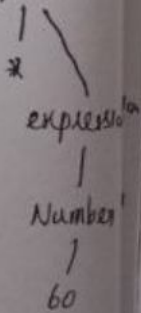 *
expression
Number
60